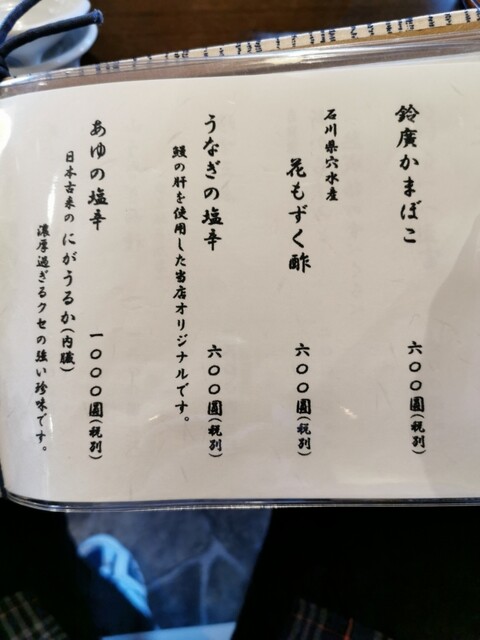 鈴廣かまぼこ 六〇〇圓(税別)
石川県穴水産
花もずく酢 六〇〇圓(税別)
うなぎの塩辛 六〇〇圓(税別)
鰻の肝を使用した当店オリジナルです。
あゆの塩辛 一〇〇〇圓(税別)
日本古来のにがうるか(内臓)
濃厚過ぎるクセの強い珍味です。